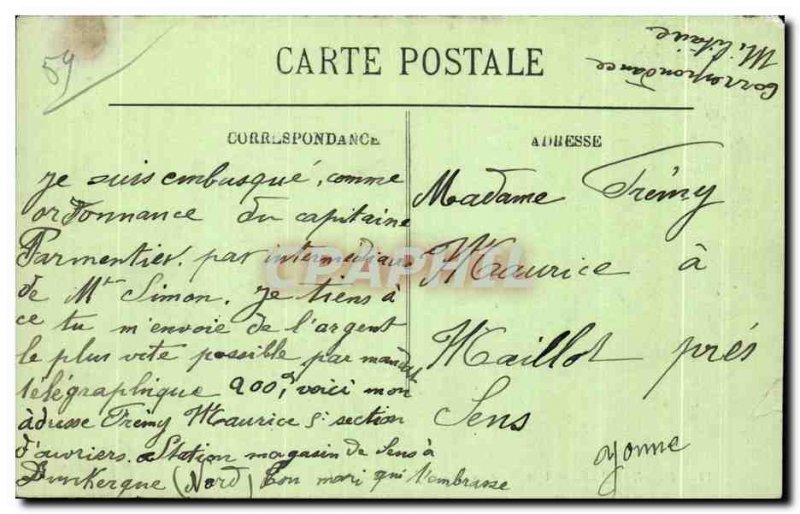 59
CARTE POSTALE
Correspondance
Militaire
CORRESPONDANCE
ADRESSE
je suis embusqué, comme
ordonnance du capitaine
Parmentier. par intermédiaire
de Mr Simon. je tiens à
ce tu m'envoie de l'argent
le plus vite possible par mandat
télégraphique 200f, voici mon
adresse Trémy Maurice S: section
d'ouvriers. Station magasin de Sens à
Dunkerque (Nord) Ton mari qui t'embrasse
Madame Trémy
Maurice à
Maillot prés
Sens
yonne
CPAPHIL